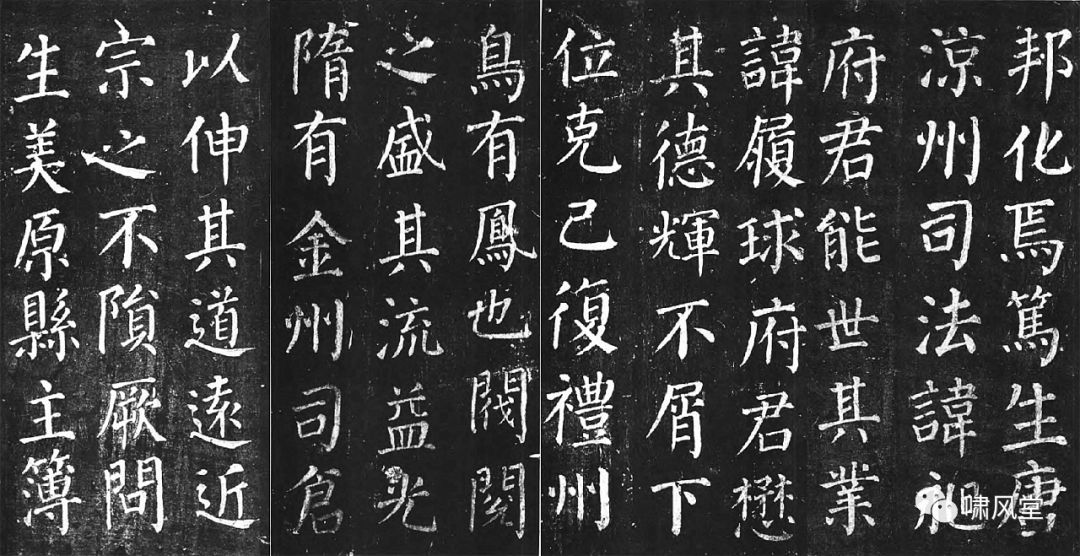 邦化焉篤生唐
涼州司法諱昶
府君能世其業
諱履球府君懋
其德輝不屑下
位克己復禮州
鳥有鳳也閥閱
之盛其流益光
隋有金州司倉
以伸其道遠近
宗之不隕厥問
生美原縣主簿
啸风堂